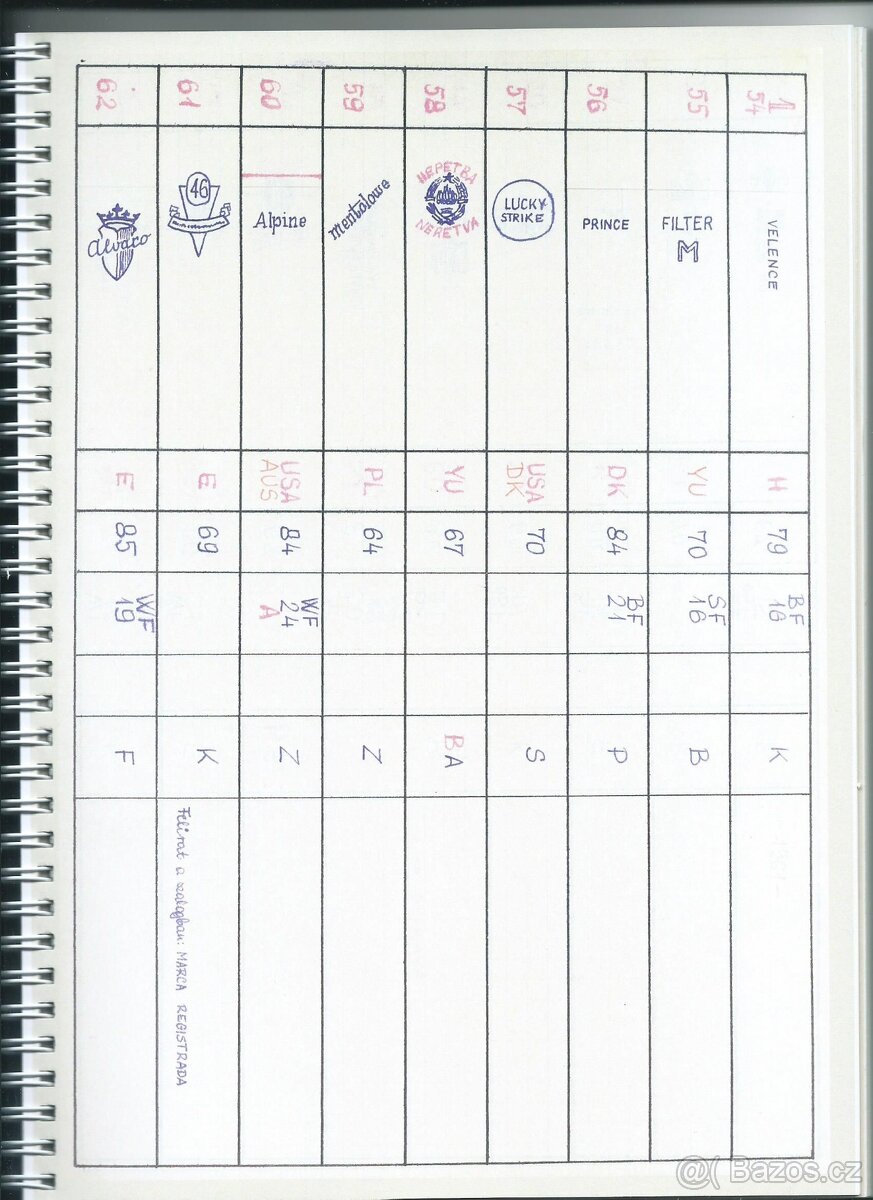 1
54
VELENCE
H
79
BF
16
K
55
FILTER
M
YU
70
SF
16
B
56
PRINCE
DK
84
BF
21
P
57
LUCKY
STRIKE
USA
DK
70
S
58
НЕРЕТВА
NERETVA
YU
67
BA
59
Mentolowe
PL
64
Z
60
Alpine
USA
AUS
84
WF
24
A
Z
61
46
E
69
K
Felirat a szalagban: MARCA REGISTRADA
62
Alvaro
E
85
WF
19
F
@( Bazos.cz